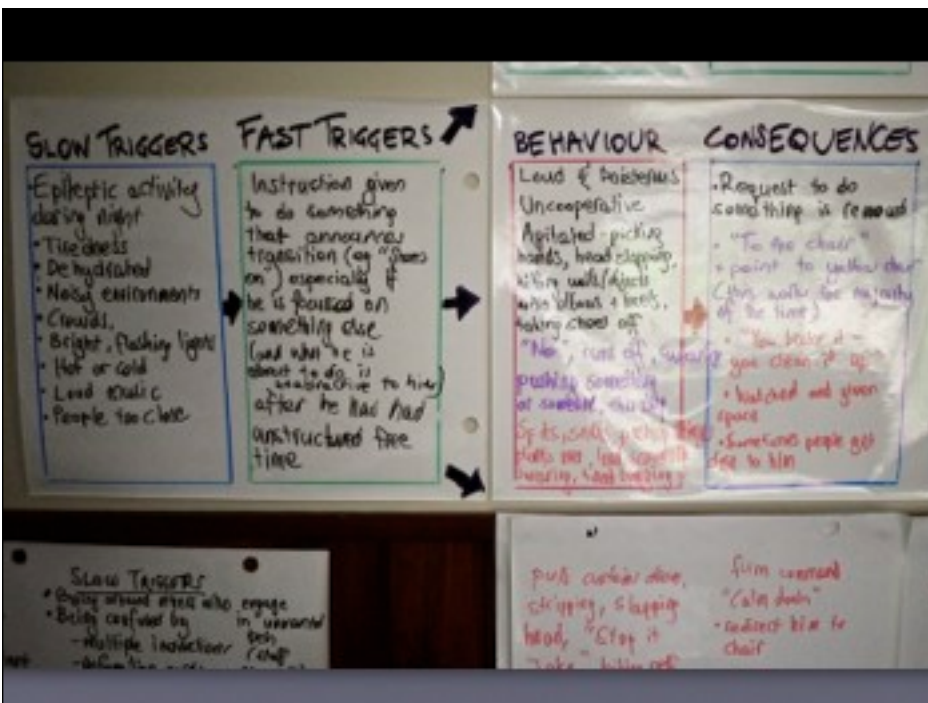 SLOW TRIGGERS
Epileptic activity
during night
• Tiredness
• Dehydrated
• Noisy environments
• Crowds,
• Bright, flashing lights
• Hot or cold
• Loud music
• People too close
FAST TRIGGERS
Instruction given
to do something
that announces
transition (eg "Shoes
on") especially if
he is focused on
something else
(and what he is
about to do is
unattractive to him)
after he has had
unstructured free
time
BEHAVIOUR
Loud & boisterous
Uncooperative
Agitated - picking
hands, head slapping,
hitting walls/objects
with elbows & heels,
taking shoes off
"No", run off, swearing
pushing something
or someone,
Spits,
swearing,
CONSEQUENCES
• Request to do
something is removed
• "To the chair"
+ point to yellow chair
(this works the majority
of the time)
"You broke it -
you clean it up"
• Watched and given
space
• Sometimes people get
close to him
SLOW TRIGGERS
• Being around others who engage
in unwanted
• Being confused by
- Multiple instructions
(staff
pull curtains down,
stripping, slapping
head, "Stop it
firm command
"Calm down"
• redirect him to
chair